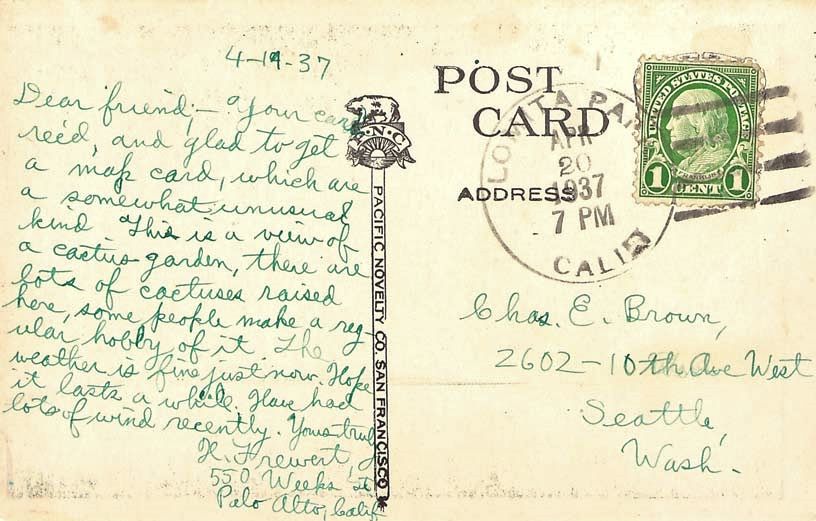 4-19-37
Dear friend;- Your card
rec'd, and glad to get
a map card, which are
a somewhat unusual
kind This is a view of
a cactus garden, there are
lots of cactuses raised
here, some people make a reg-
ular hobby of it The
weather is fine just now. Hope
it lasts a while. Have had
lots of wind recently. Yours truly
H. Frewert,
550 Weeks St
Palo Alto, Calif.
P.N.C.
PACIFIC NOVELTY CO. SAN FRANCISCO
POST
CARD
ADDRESS
LOMITA PARK
APR
20
1937
7 PM
CALIF
UNITED STATES POSTAGE
FRANKLIN
1 CENT 1
Chas. E. Brown,
2602-10th Ave West
Seattle,
Wash.